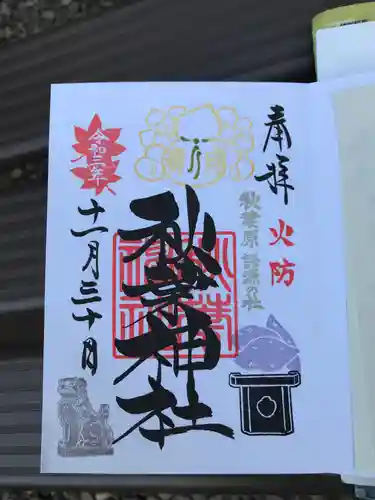 奉拝
火防
秋葉原 語源の社
秋葉神社
令和三年
十一月三十日